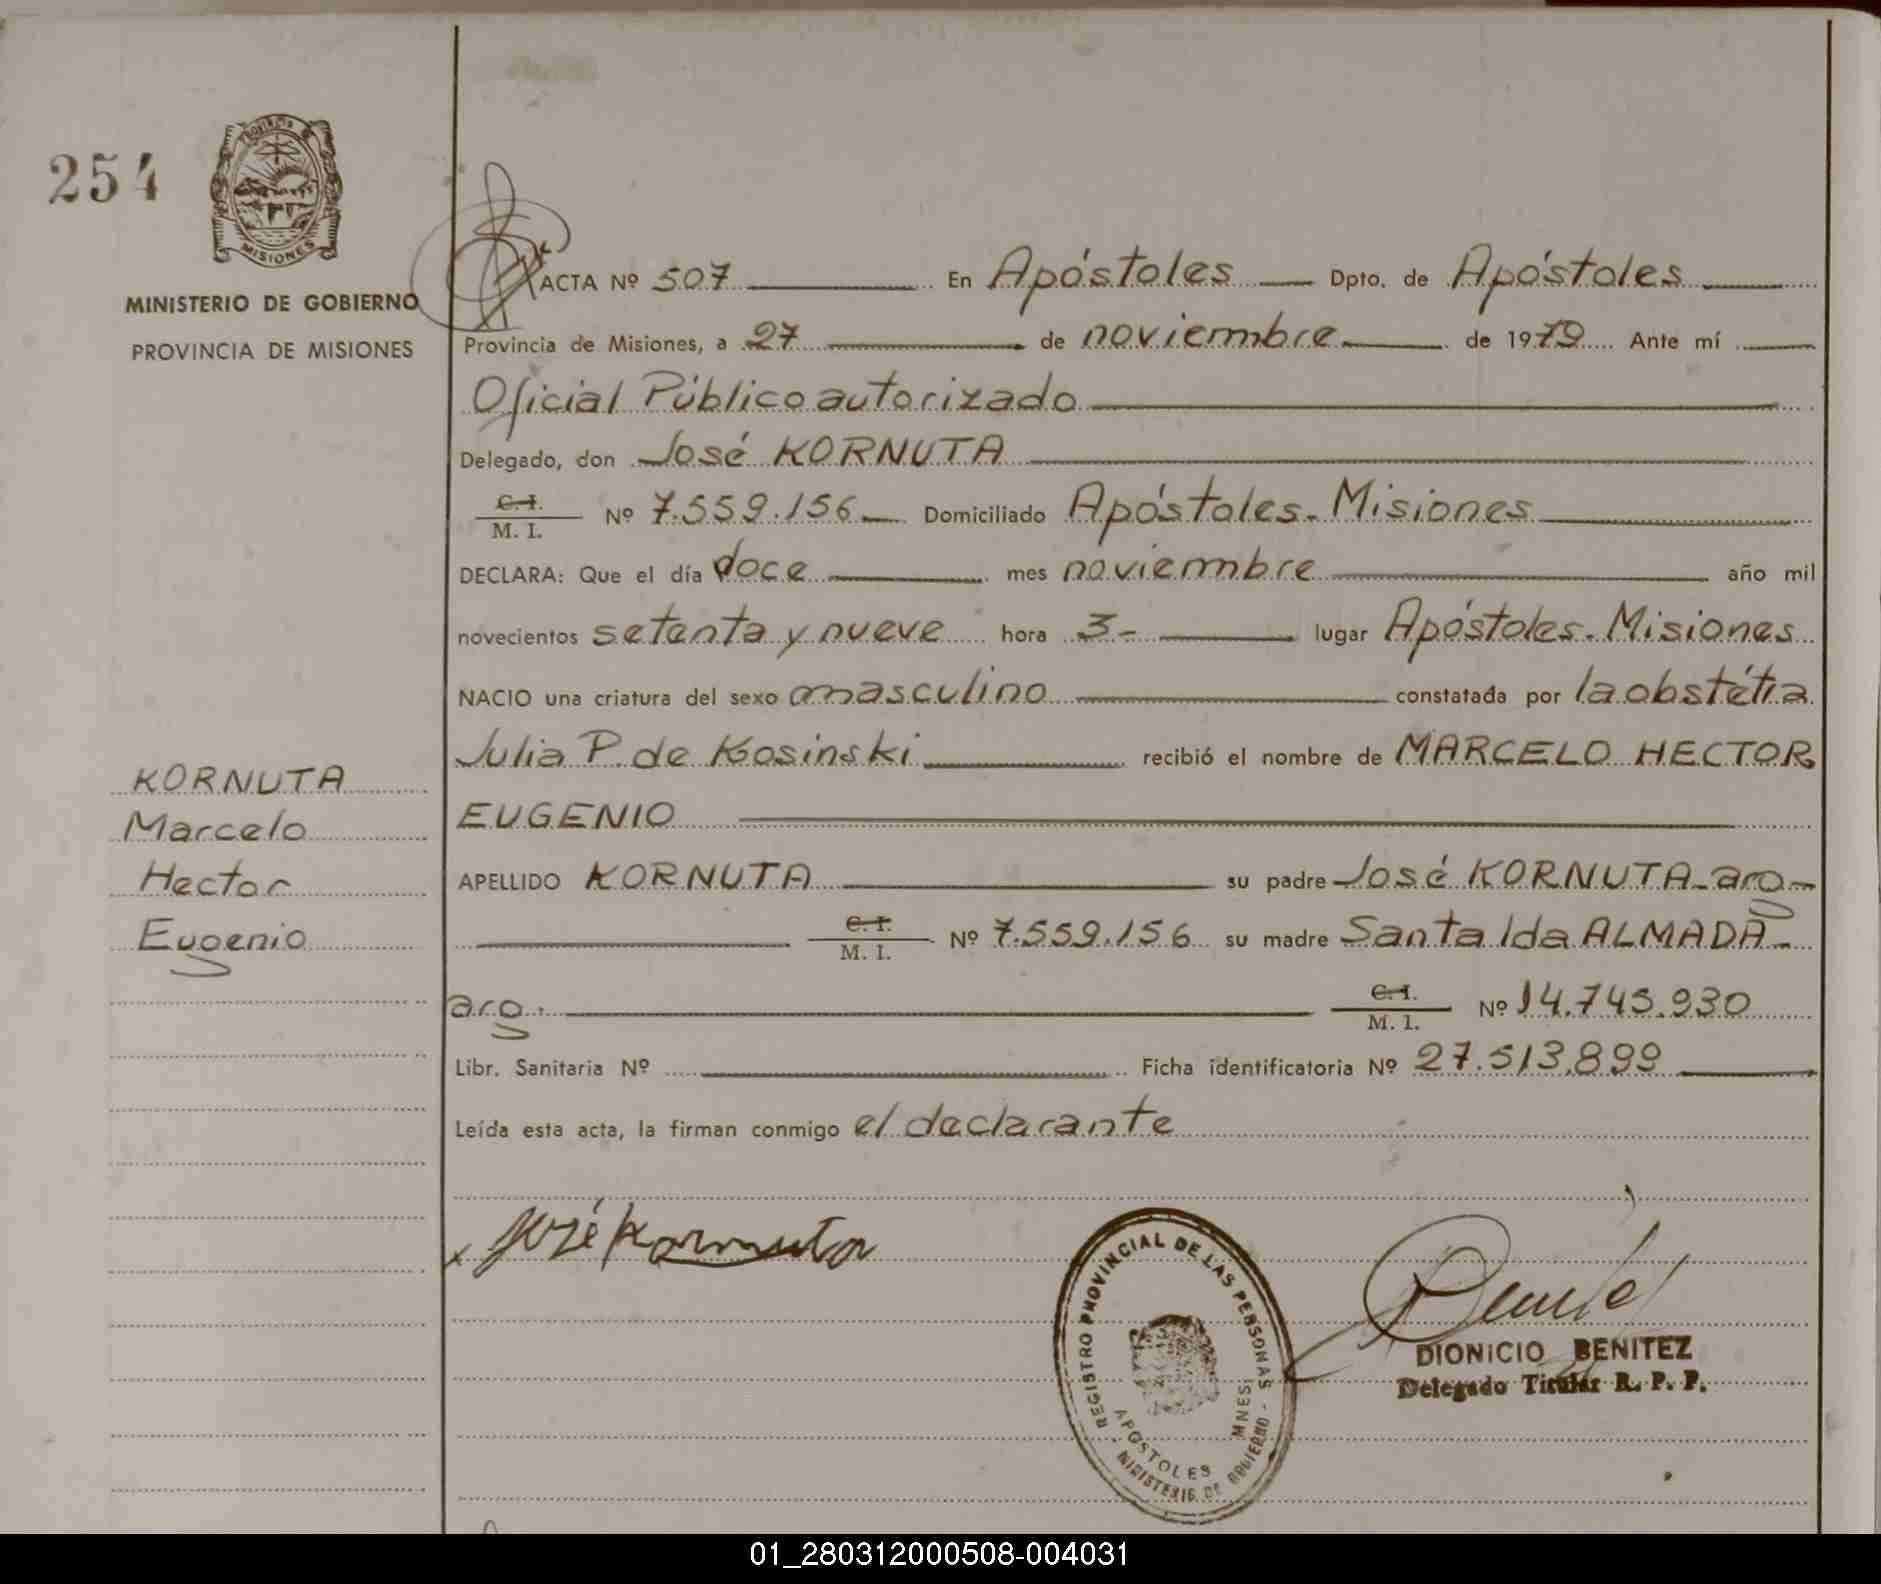 254
PROVINCIA
MISIONES
MINISTERIO DE GOBIERNO
PROVINCIA DE MISIONES
KORNUTA
Marcelo
Hector
Eugenio
ACTA Nº 507 En Apóstoles Dpto. de Apóstoles
Provincia de Misiones, a 27 de noviembre de 1979 Ante mí
Oficial Público autorizado
Delegado, don José KORNUTA
C. I.
M. I. Nº 7.559.156 Domiciliado Apóstoles. Misiones
DECLARA: Que el día doce mes noviembre año mil
novecientos setenta y nueve hora 3- lugar Apóstoles. Misiones
NACIO una criatura del sexo masculino constatada por la obstétia
Julia P. de Kosinski recibió el nombre de MARCELO HECTOR
EUGENIO
APELLIDO KORNUTA su padre José KORNUTA-arg-
C. I.
M. I. Nº 7.559.156 su madre Santa Ida ALMADA-
arg. C. I.
M. I. Nº 14.745.930
Libr. Sanitaria Nº Ficha identificatoria Nº 27.513.899
Leída esta acta, la firman conmigo el declarante
x José Kornuta
REGISTRO PROVINCIAL DE LAS PERSONAS
APOSTOLES MNES
- MINISTERIO DE GOBIERNO -
DIONICIO BENITEZ
Delegado Titular R. P. P.
01_280312000508-004031